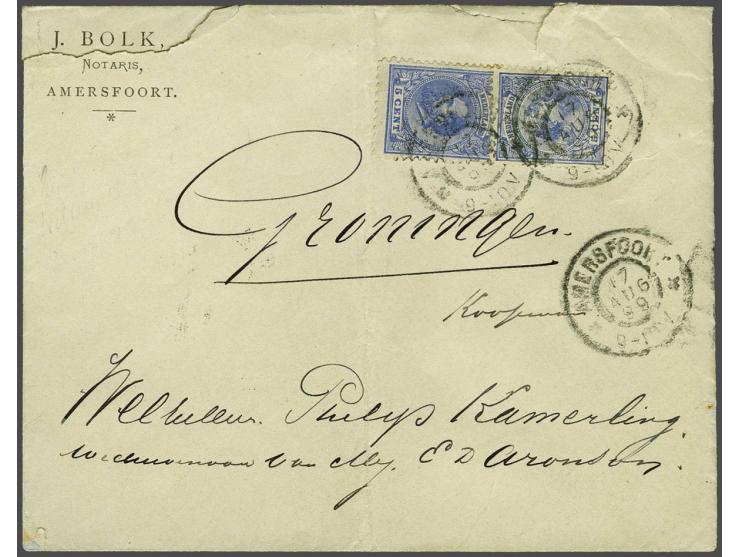 J. BOLK,
NOTARIS,
AMERSFOORT.
*
5 CENT
NEDERLAND
5 CENT
Groningen.
Koopman
AMERSFOORT
17
AUG
99
9-10V
WelEdelHeer Philips Kamerling.
weduwenaar van Mej. E D Aronson.